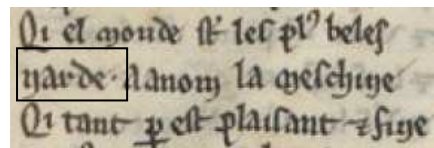 Qi el monde st les pl⁹ beles
yarde · A anom la meschine
Qi tant p̱ est plaisant ⁊ fine